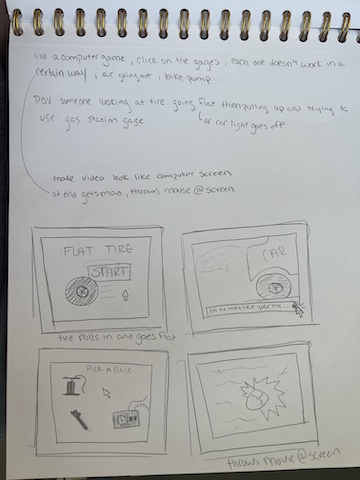 like a computer game, click on the gages, each one doesn't work in a
certain way, air going out, bike pump.
POV someone looking at tire going flat then pulling up and trying to
use gas station gage
or car light goes off
make video look like computer screen
at end gets mad, throws mouse @ screen
FLAT TIRE
START
CAR
oh no looks like your tire...
tire rolls in and goes flat
Pick a Gage
throws mouse @ screen